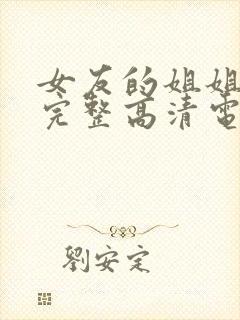 女友的姐姐
完整高清電
劉安定